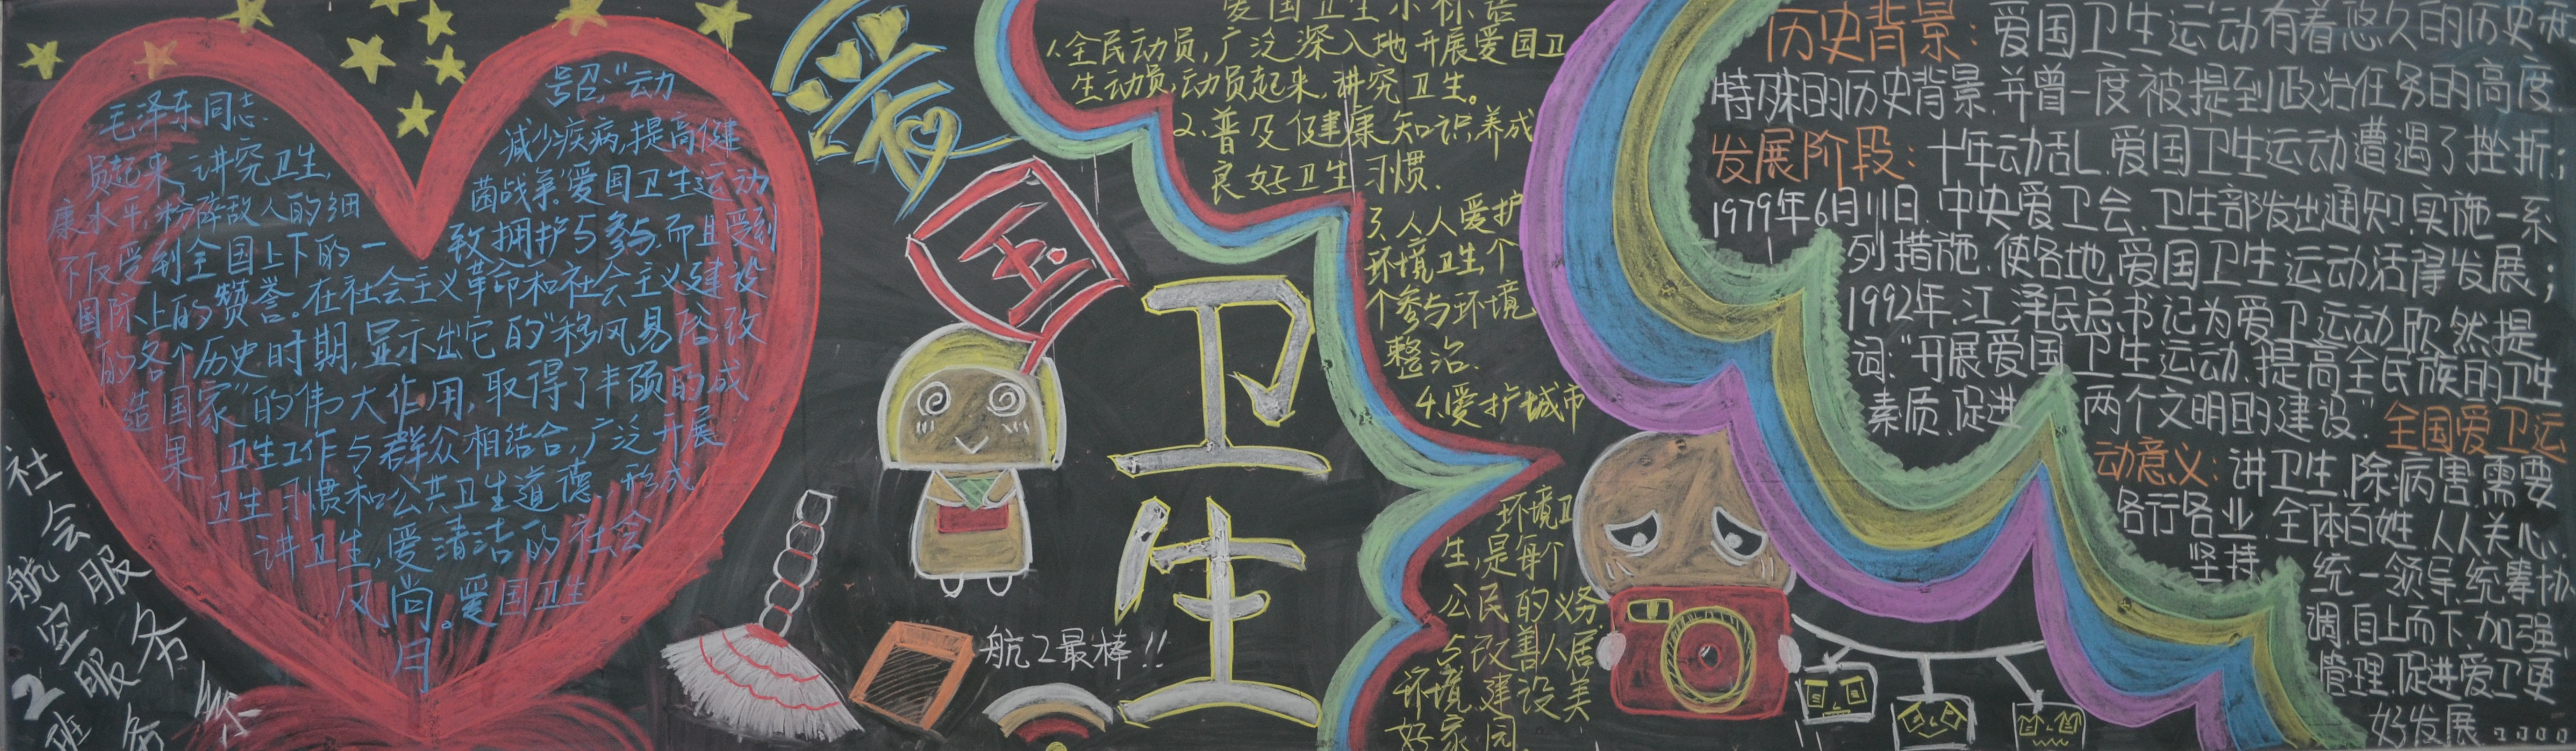 毛泽东同志
号召,"动
员起来,讲究卫生,
减少疾病,提高健
康水平,粉碎敌人的细
菌战争"爱国卫生运动
不仅受到全国上下的一
致拥护与参与,而且受到
国际上的赞誉。在社会主义革命和社会主义建设
的各个历史时期,显示出它的"移风易俗,改
造国家"的伟大作用,取得了丰硕的成
果,卫生工作与群众相结合,广泛开展
卫生习惯和公共卫生道德,形成
讲卫生,爱清洁的社会
风尚。爱国卫生
月
社会服务系
航空服务
2班
爱
国
卫
生
航2最棒!!
爱国卫生小标语
1.全民动员,广泛深入地开展爱国卫
生动员,动员起来,讲究卫生。
2、普及健康知识,养成
良好卫生习惯.
3、人人爱护
环境卫生,个
个参与环境
整治.
4、爱护城市
环境卫
生,是每个
公民的义务.
5、改善人居
环境,建设美
好家园.
历史背景:爱国卫生运动有着悠久的历史和
特殊的历史背景.并曾一度被提到政治任务的高度.
发展阶段:十年动乱.爱国卫生运动遭遇了挫折;
1979年6月11日.中央爱卫会.卫生部发出通知.实施一系
列措施.使各地.爱国卫生运动活得发展;
1992年.江泽民总书记为爱卫运动欣然提
词:"开展爱国卫生运动.提高全民族的卫生
素质.促进两个文明的建设."
全国爱卫运
动意义:讲卫生.除病害.需要
各行各业.全体百姓.人人关心.
坚持统一领导.统筹协
调.自上而下.加强
管理.促进爱卫更
好发展....